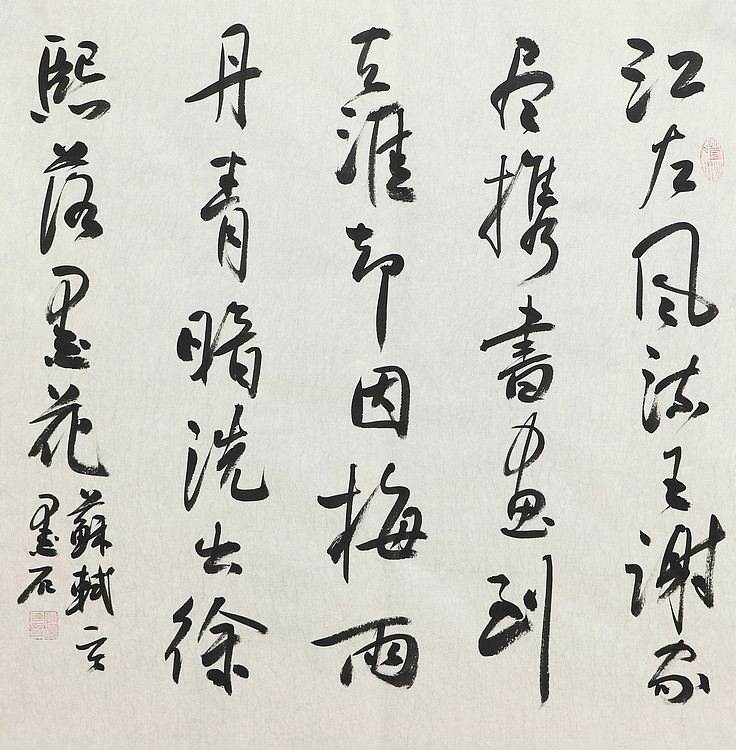 江左风流王谢家
尽携書画到
天涯却因梅雨
丹青暗洗出徐
熙落墨花
蘇軾言
墨石